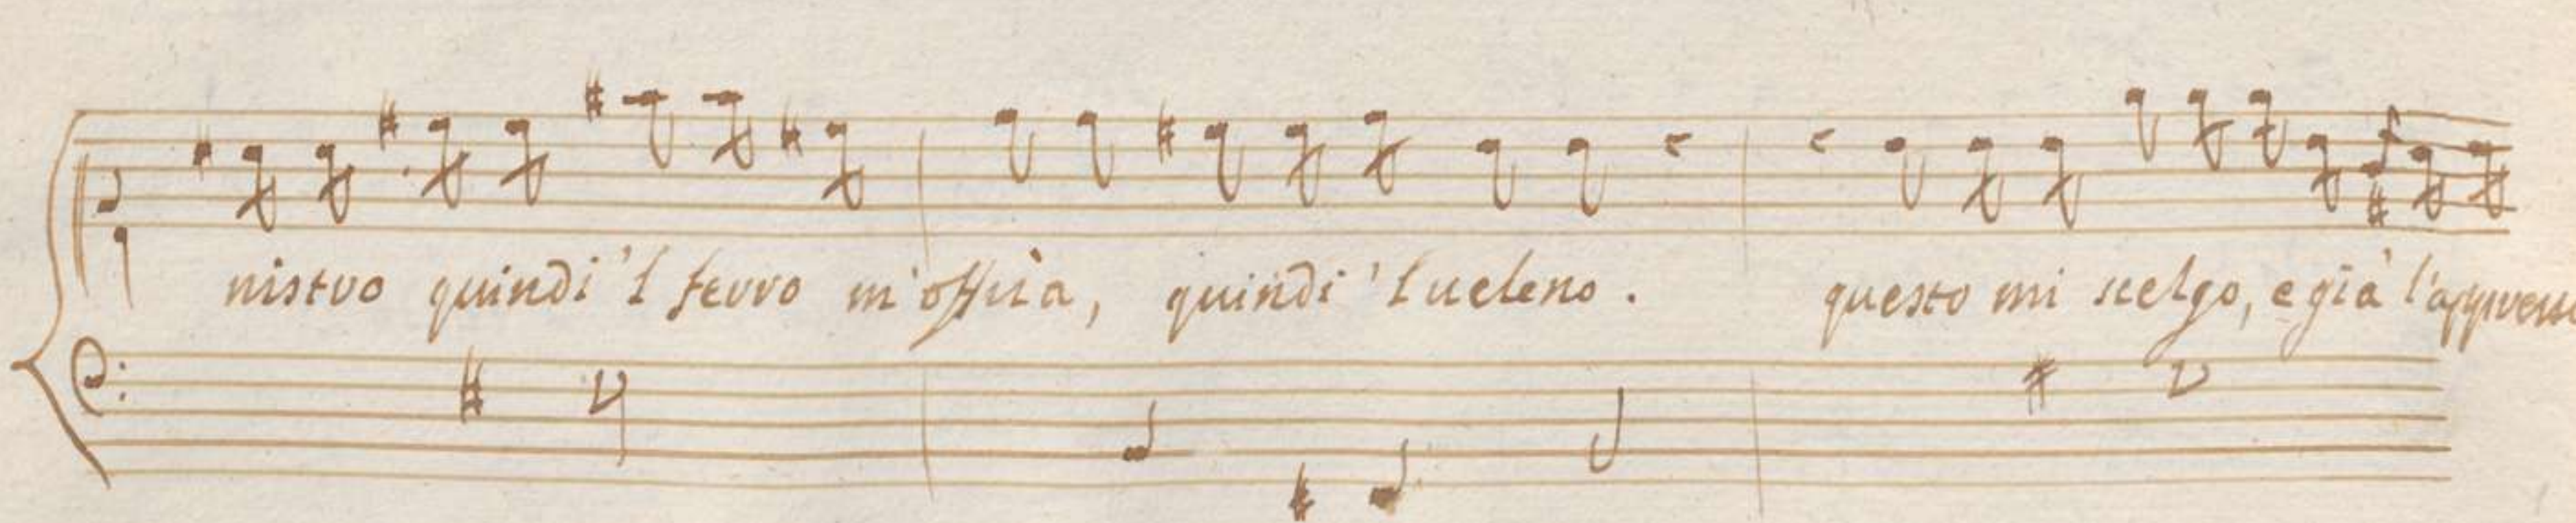 nistro quindi 'l ferro m'offria, quindi 'l ueleno. questo mi scelgo, e già l'appresso